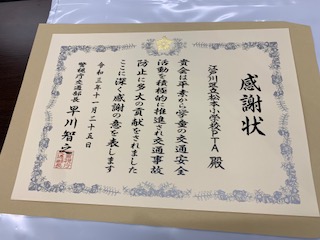 感謝状
江戸川区立松本小学校PTA 殿
貴会は平素から学童の交通安全
活動を積極的に推進され交通事故
防止に多大の貢献をされました
ここに深く感謝の意を表します
令和三年十一月二十五日
警視庁交通部長 早川智之